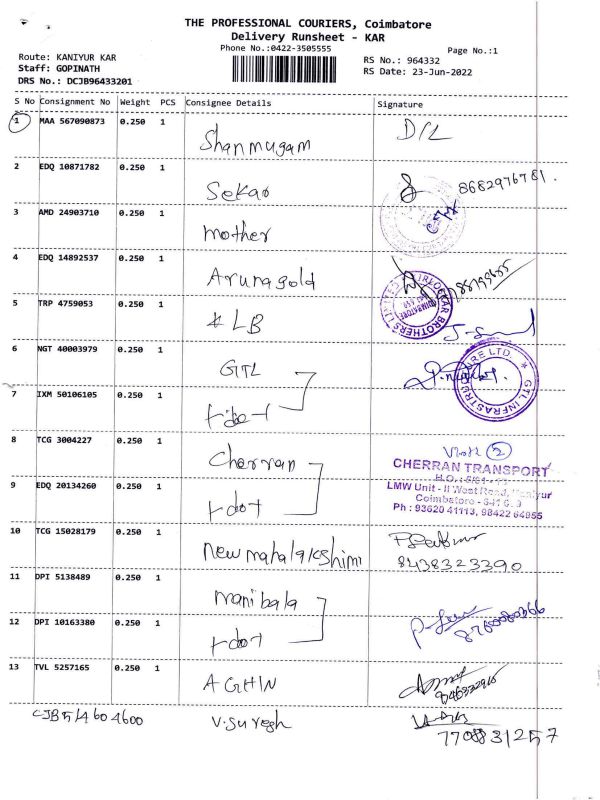 THE PROFESSIONAL COURIERS, Coimbatore
Delivery Runsheet - KAR
Phone No.:0422-3505555
Page No.:1
Route: KANIYUR KAR
Staff: GOPINATH
DRS No.: DCJB96433201
RS No.: 964332
RS Date: 23-Jun-2022
S No Consignment No Weight PCS Consignee Details Signature
1 MAA 567090873 0.250 1 Shanmugam D/L
2 EDQ 10871782 0.250 1 Sekar 8682976781.
3 AMD 24903710 0.250 1 mother
4 EDQ 14892537 0.250 1 Arunagold
5 TRP 4759053 0.250 1 LB
6 NGT 40003979 0.250 1 GTL
GTL INFRASTRUCTURE LTD.
7 IXM 50106105 0.250 1
8 TCG 3004227 0.250 1 cherran
CHERRAN TRANSPORT
LMW Unit - II West Road, Kaniyur
Coimbatore
Ph : 93620 41113, 98422 64955
9 EDQ 20134260 0.250 1
10 TCG 15028179 0.250 1 new mahalakshimi
8438323390
11 DPI 5138489 0.250 1 manibala
12 DPI 10163380 0.250 1
13 TVL 5257165 0.250 1
CJB 514604600 V.Suresh
7708831257